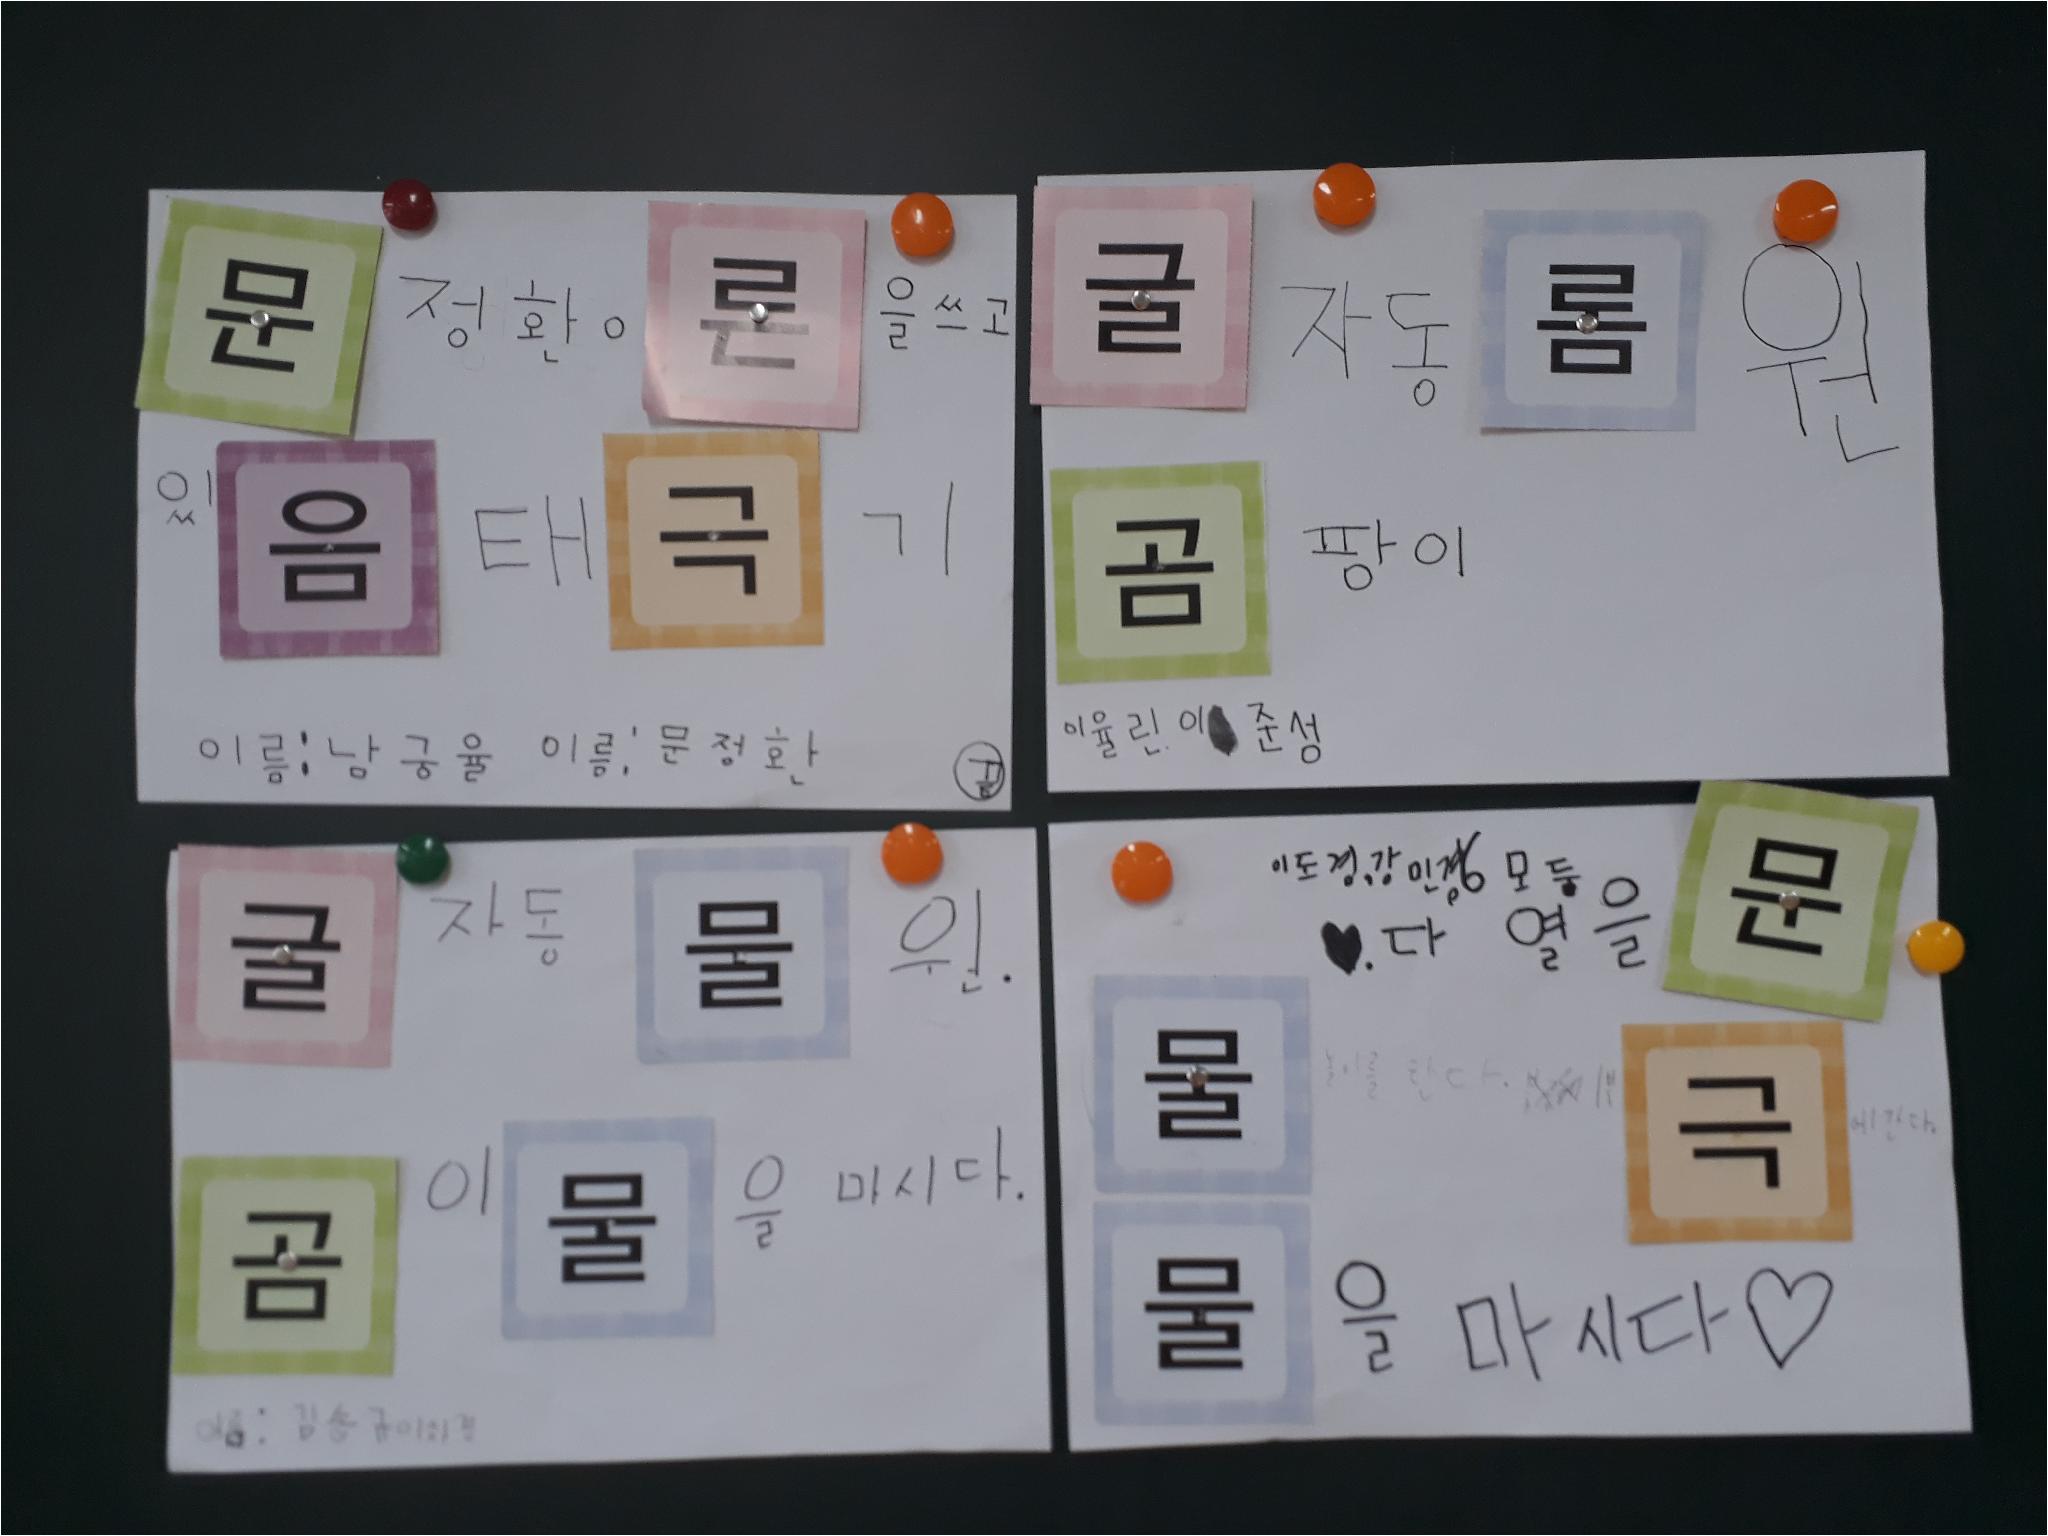 문 정환 론 을쓰고
있 음 태 극 기
이름:남궁율 이름:문정환
끝
글 자동 롬 원
곰 팡이
이율린.이 준성
글 자동 물 원.
곰 이 물 을 마시다.
이름:
이도경,강민경 모둠
♥.다 열을 문
물 놀이를 한다. 극 에간다.
물 을 마시다♡